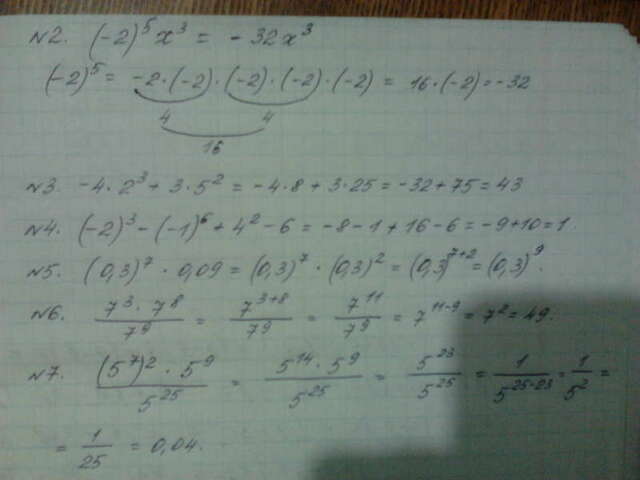 №2. (-2)⁵x³ = -32x³
(-2)⁵ = -2·(-2)·(-2)·(-2)·(-2) = 16·(-2) = -32
4 4
16
№3. -4·2³ + 3·5² = -4·8 + 3·25 = -32 + 75 = 43
№4. (-2)³ - (-1)⁶ + 4² - 6 = -8 - 1 + 16 - 6 = -9 + 10 = 1.
№5. (0,3)⁷ · 0,09 = (0,3)⁷ · (0,3)² = (0,3)⁷⁺² = (0,3)⁹.
№6. 7³·7⁸/7⁹ = 7³⁺⁸/7⁹ = 7¹¹/7⁹ = 7¹¹⁻⁹ = 7² = 49.
№7. (5⁷)²·5⁹/5²⁵ = 5¹⁴·5⁹/5²⁵ = 5²³/5²⁵ = 1/5²⁵⁻²³ = 1/5² =
= 1/25 = 0,04.